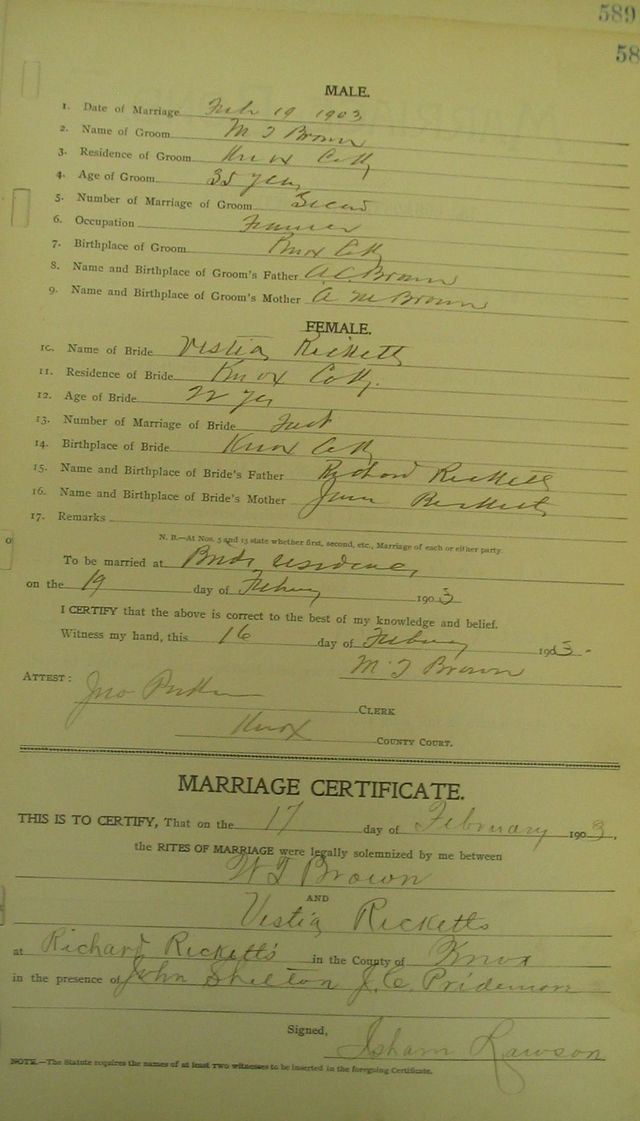 589
58
MALE.
1. Date of Marriage Feb 19 1903
2. Name of Groom M T Brown
3. Residence of Groom Knox Co Ky
4. Age of Groom 35 years
5. Number of Marriage of Groom Second
6. Occupation Farmer
7. Birthplace of Groom Knox Co Ky
8. Name and Birthplace of Groom's Father A. C. Brown
9. Name and Birthplace of Groom's Mother A M Brown
FEMALE.
10. Name of Bride Vestia Ricketts
11. Residence of Bride Knox Co Ky.
12. Age of Bride 22 yrs
13. Number of Marriage of Bride First
14. Birthplace of Bride Knox Co Ky
15. Name and Birthplace of Bride's Father Richard Ricketts
16. Name and Birthplace of Bride's Mother Ricketts
17. Remarks
N. B.—At Nos. 5 and 13 state whether first, second, etc., Marriage of each or either party.
To be married at Brids residence
on the 19 day of Febuary 1903
I CERTIFY that the above is correct to the best of my knowledge and belief.
Witness my hand, this 16 day of Febuary 1903.
M. T Brown
ATTEST: Jno
CLERK
Knox COUNTY COURT.
MARRIAGE CERTIFICATE.
THIS IS TO CERTIFY, That on the 17 day of February 1903.
the RITES OF MARRIAGE were legally solemnized by me between
W T Brown
AND
Vestia Ricketts
at Richard Ricketts' in the County of Knox
in the presence of John Shelton J. C. Pridemore
Signed,
Isham Lawson
NOTE.—The Statute requires the names of at least TWO witnesses to be inserted in the foregoing Certificate.